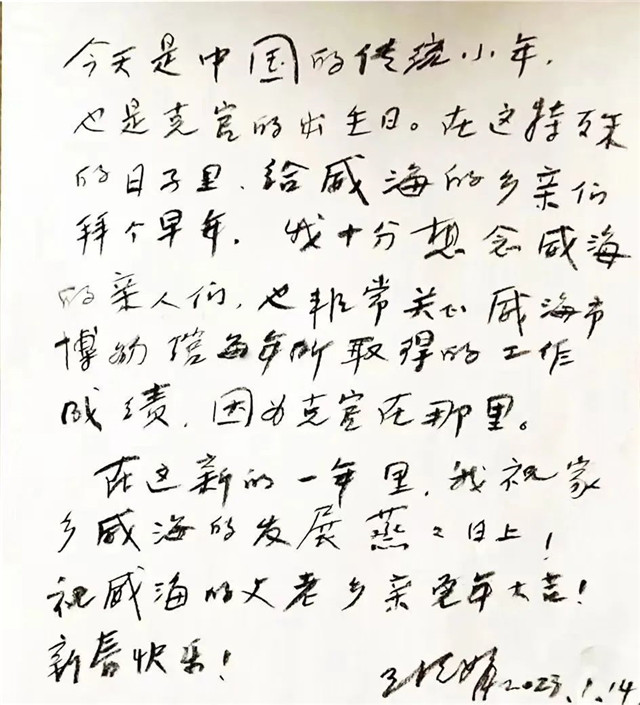 今天是中国的传统小年，
也是克宫的出生日。在这特殊
的日子里、给威海的乡亲们
拜个早年，我十分想念威海
的亲人们，也非常关心威海市
博物馆每年所取得的工作
成绩，因为克宫在那里。
在这新的一年里，我祝家
乡威海的发展蒸々日上！
祝威海的父老乡亲兔年大吉！
新春快乐！
2023.1.14